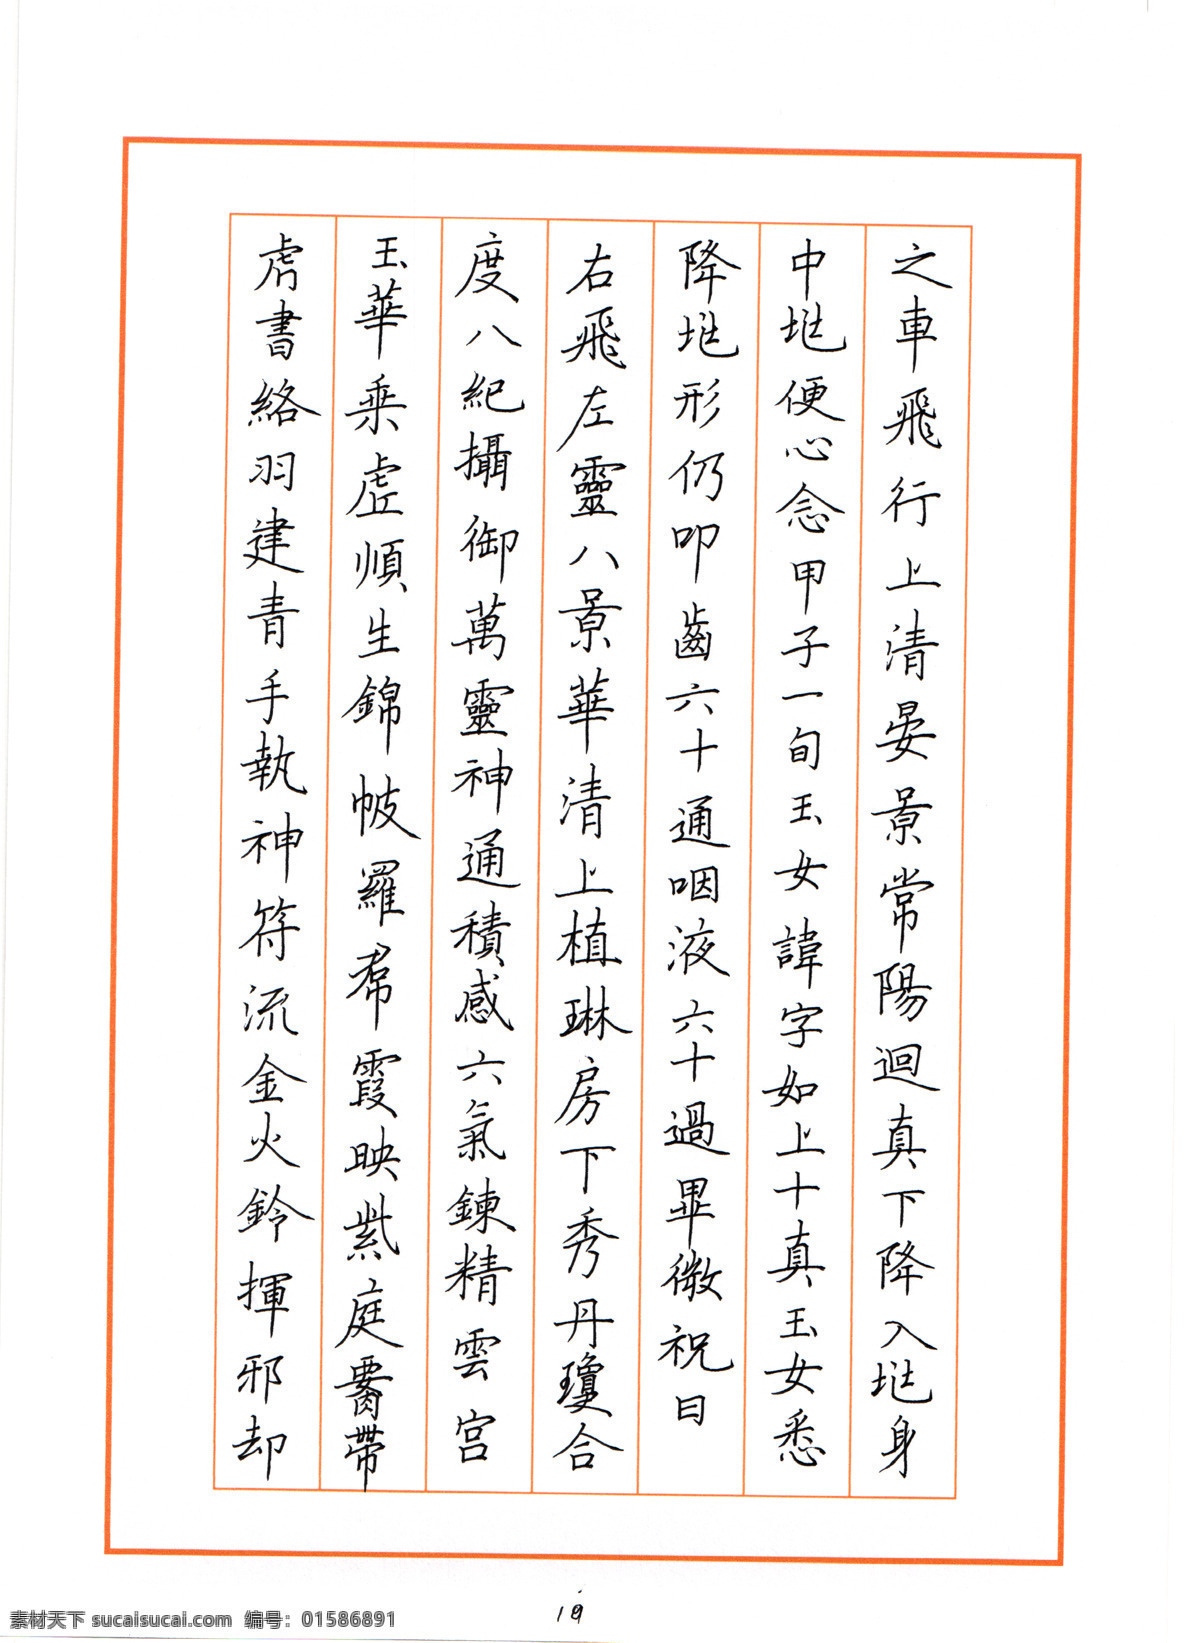 之車飛行上清晏景常陽迴真下降入兆身
中兆便心念甲子一旬玉女諱字如上十真玉女悉
降兆形仍叩齒六十通咽液六十過畢微祝曰
右飛左靈八景華清上植琳房下秀丹瓊合
度八紀攝御萬靈神通積感六氣鍊精雲宮
玉華乗虛順生錦帔羅帬霞映紫庭腰帶
虎書絡羽建青手執神符流金火鈴揮邪却
19
素材天下 sucaisucai.com 编号：01586891